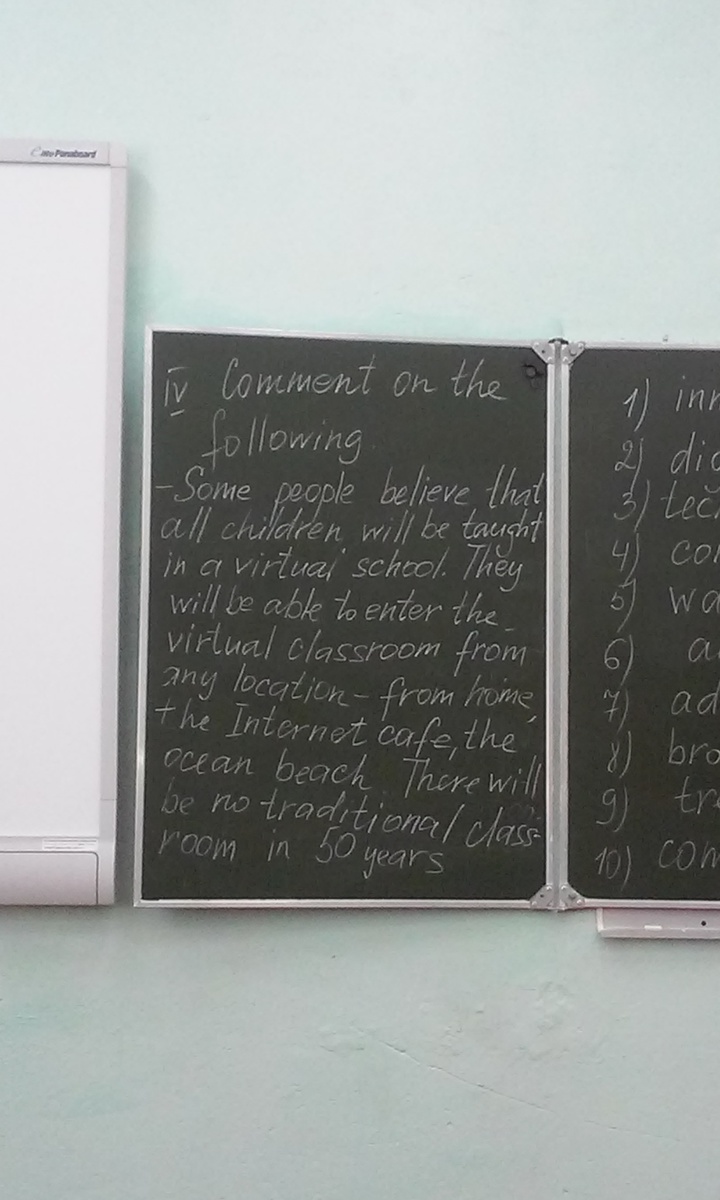 Panaboard
IV Comment on the
following
- Some people believe that
all children will be taught
in a virtual school. They
will be able to enter the
virtual classroom from
any location - from home,
the Internet cafe, the
ocean beach There will
be no traditional class-
room in 50 years
1) inn
2) dig
3) tec
4) co
5) wa
6) a
7) ad
8) bro
9) tr
10) com